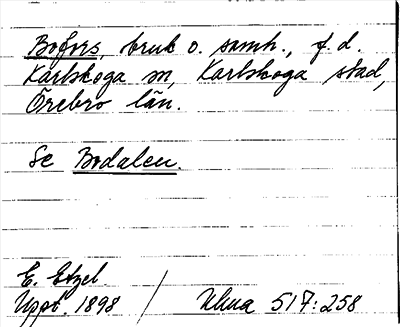 Bofors, bruk o. samh., f.d.
Karlskoga sn, Karlskoga stad,
Örebro län.
Se Bodalen.
E. Etzel.
Uppt. 1898 / Uhua 517:258